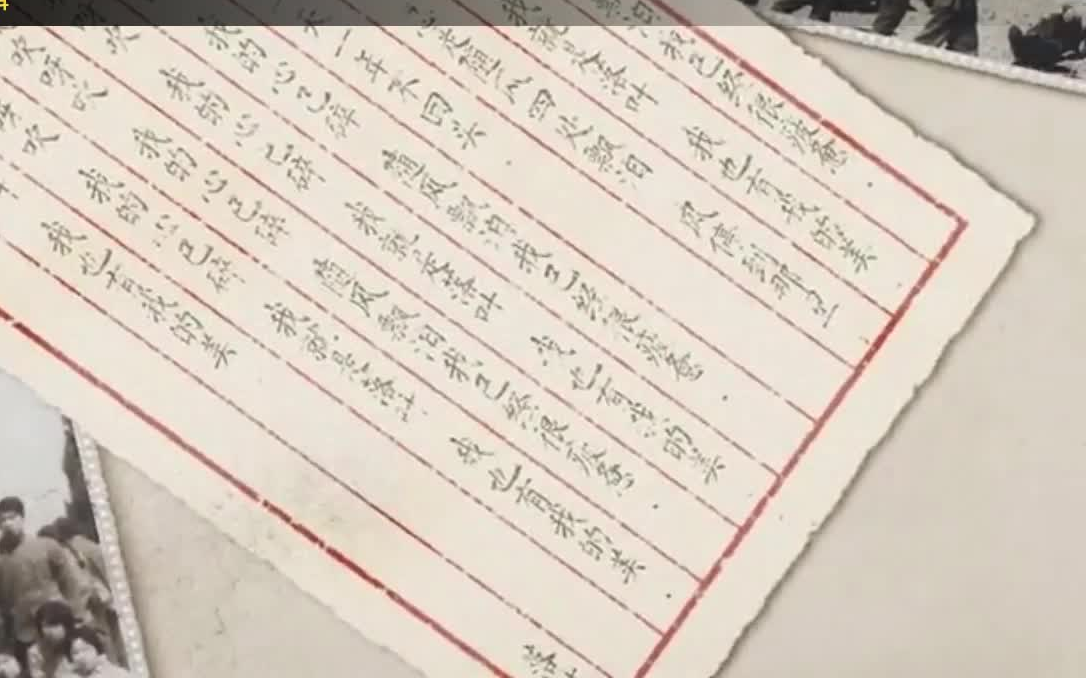 泪我已经很疲惫.
我就是落叶 我也有我的美
随风四处飘泪 风停到那里
一年不回头.
吹 我的心已碎 随风飘泪我已经很疲惫.
吹呀吹 我的心已碎 我就是落叶 我也有我的美
吹 我的心已碎 随风飘泪我已经很疲惫.
我的心已碎 我就是落叶 我也有我的美
我也有我的美
落叶